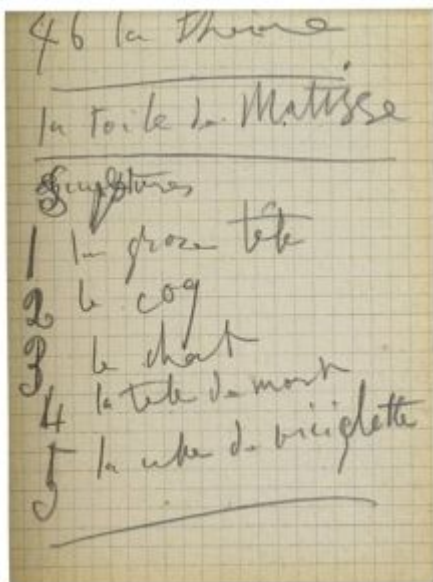 46 la
la toile de Matisse
Sculptures
1 la grose tête
2 le coq
3 le chat
4 la tete de mort
5 la de biciglette